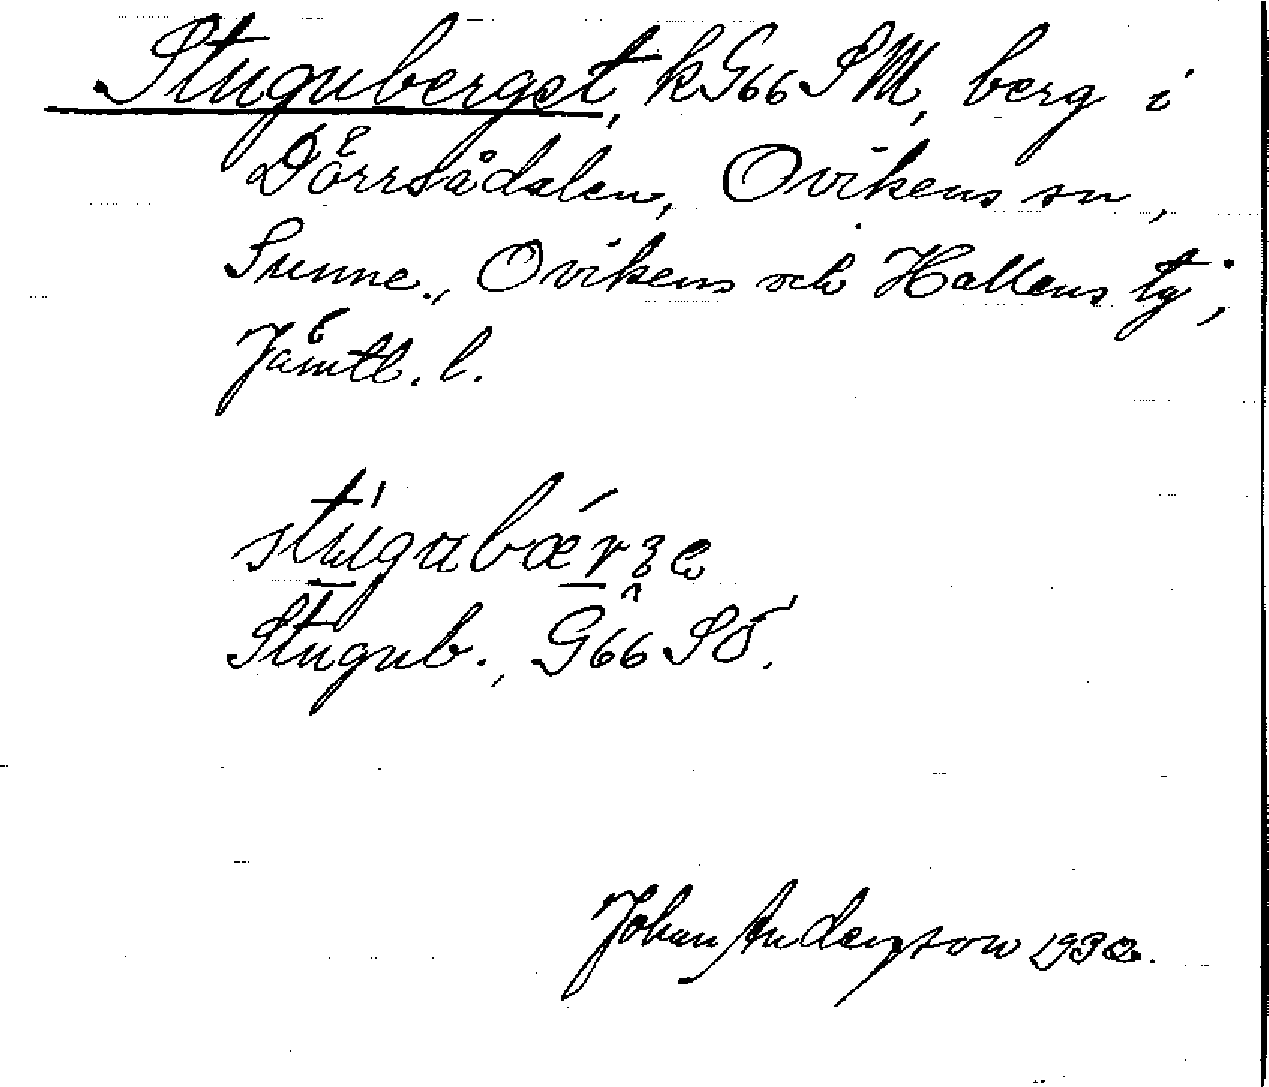 Stuguberget, k G66 SM, berg i
Dörrsådalen, Ovikens sn,
Sunne, Ovikens och Hallens tg,
Jämtl. l.
stugubærʒe
Stugub., G66 SÖ.
Johan Anderson 1932.